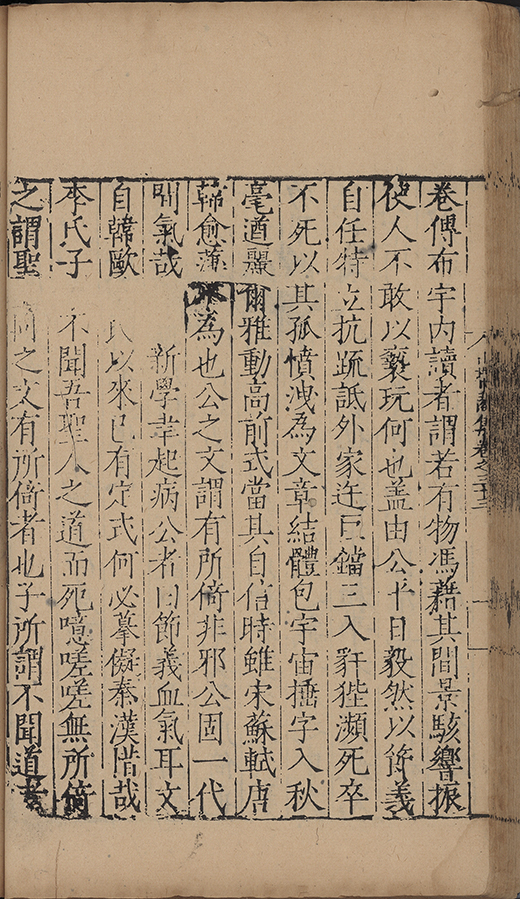 卷傳布宇內讀者謂若有物馮藉其間景駭響振
使人不敢以褻玩何也盖由公平日毅然以節義
自任特立抗疏詆外家迕巨鐺三入豻狴瀕死卒
不死以其孤憤洩為文章結體包宇宙捶字入秋
毫遒麗爾雅動高前式當其自信時雖宋蘇軾唐
韓愈薄不為也公之文謂有所倚非邪公固一代
間氣哉 新學輩起病公者曰節義血氣耳文
自韓歐 氏以來已有定式何必摹儗秦漢惜哉
李氏子 不聞吾聖人之道而死噫嗟嗟無所倚
之謂聖 之文有所倚者也子所謂不聞道者
集卷之三十三